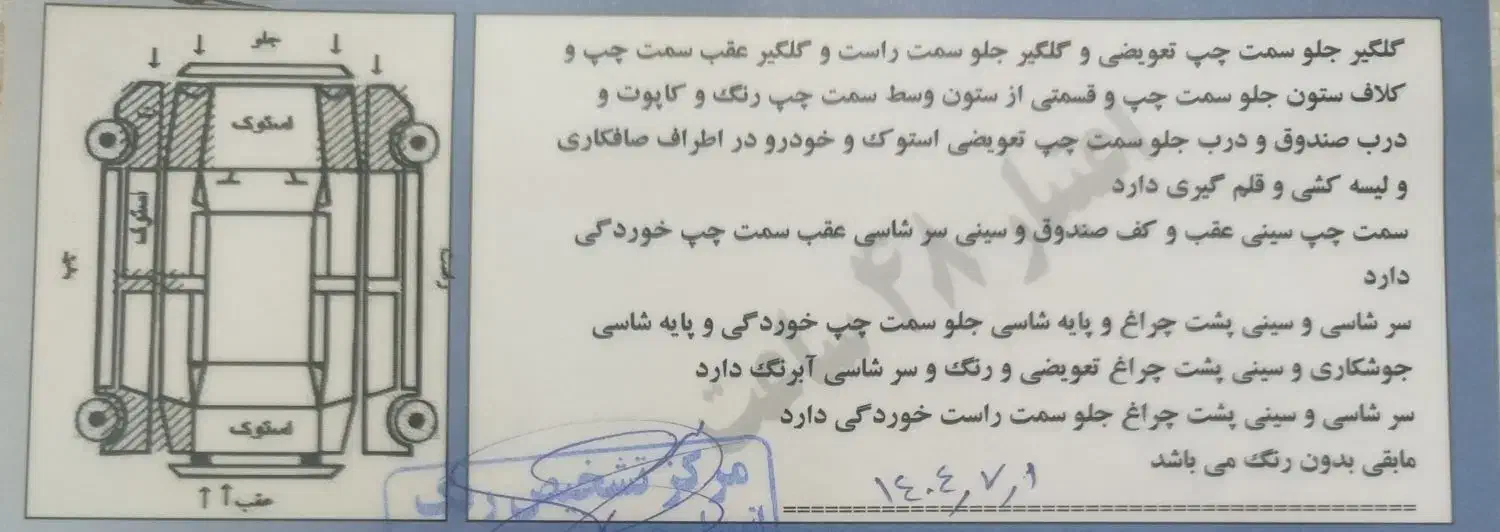 گلگیر جلو سمت چپ تعویضی و گلگیر جلو سمت راست و گلگیر عقب سمت چپ و
کلاف ستون جلو سمت چپ و قسمتی از ستون وسط سمت چپ رنگ و کاپوت و
درب صندوق و درب جلو سمت چپ تعویضی استوک و خودرو در اطراف صافکاری
و لیسه کشی و قلم گیری دارد
سمت چپ سینی عقب و کف صندوق و سینی سر شاسی عقب سمت چپ خوردگی
دارد
سر شاسی و سینی پشت چراغ و پایه شاسی جلو سمت چپ خوردگی و پایه شاسی
جوشکاری و سینی پشت چراغ تعویضی و رنگ و سر شاسی آبرنگ دارد
سر شاسی و سینی پشت چراغ جلو سمت راست خوردگی دارد
مابقی بدون رنگ می باشد
۱۴۰۴٫۷٫۹
اعتبار ۴۸ ساعت
مرکز تشخیص رنگ
جلو
استوک
استوک
چپ
راست
استوک
عقب